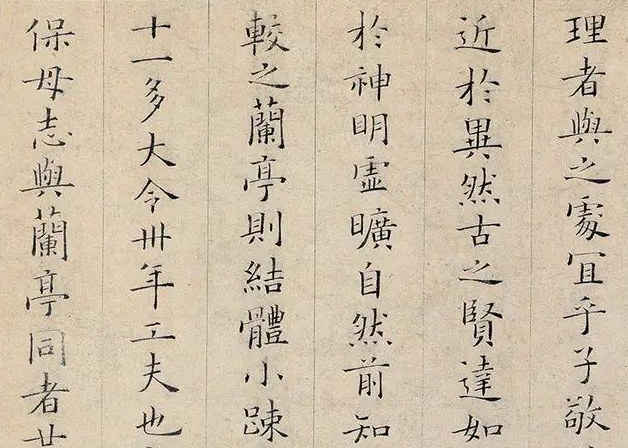 理者與之處冝乎子敬
近扵異然古之賢達如
扵神明虛曠自然前知
較之蘭亭則結體小踈
十一多大令卅年工夫也
保母志與蘭亭同者廿